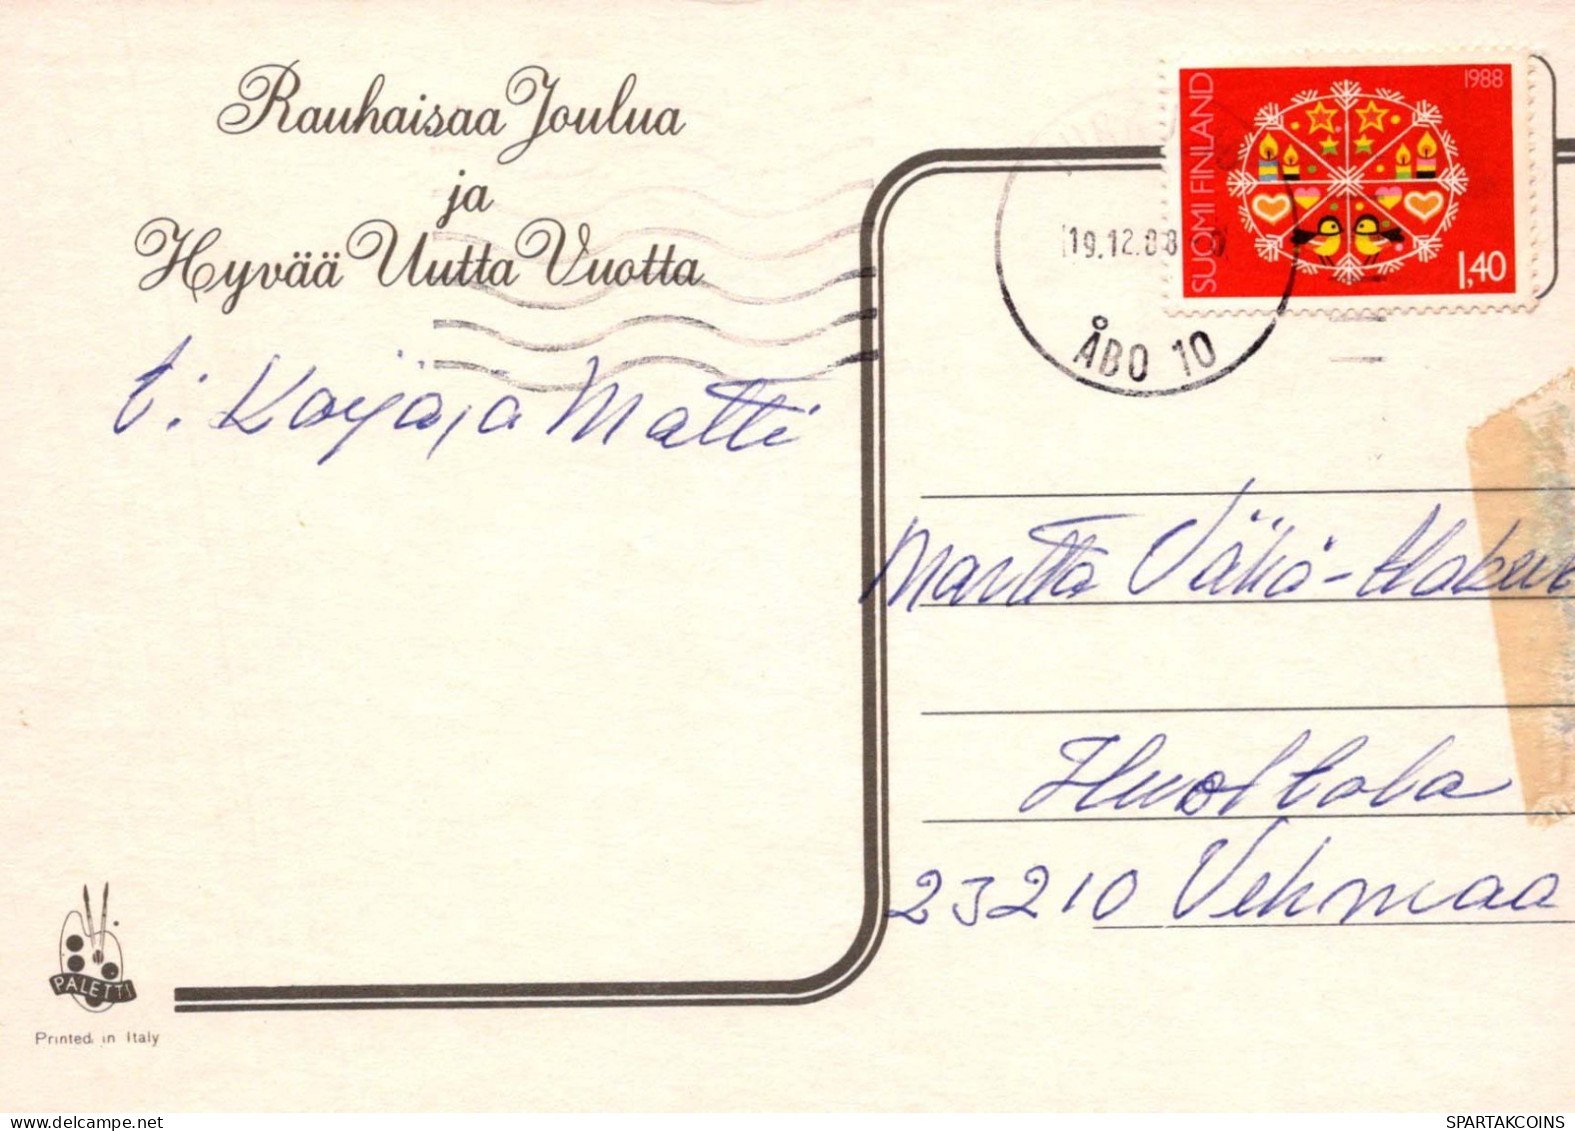 Rauhaisaa Joulua
ja
Hyvää Uutta Vuotta
t: Kaija ja Matti
SUOMI FINLAND
1988
1,40
19.12.88
ÅBO 10
Martta Vähä-
Huoltola
23210 Vehmaa
PALETTI
Printed in Italy
SPARTAKCOINS